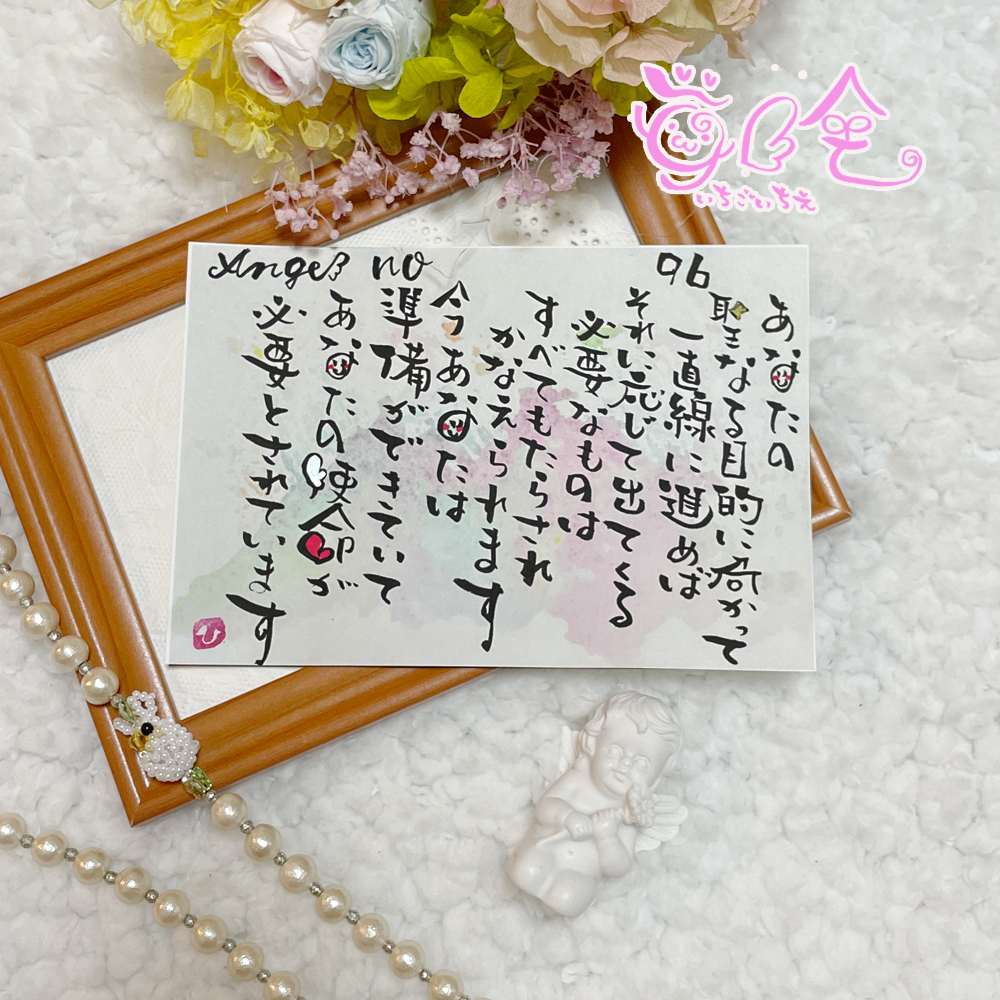 いちごいちえ
Angel no 96
あなたの
聖なる目的に向かって
一直線に進めば
それに応じて出てくる
必要なものは
すべてもたらされ
かなえられます
今あなたは
準備ができていて
あなたの使命が
必要とされています